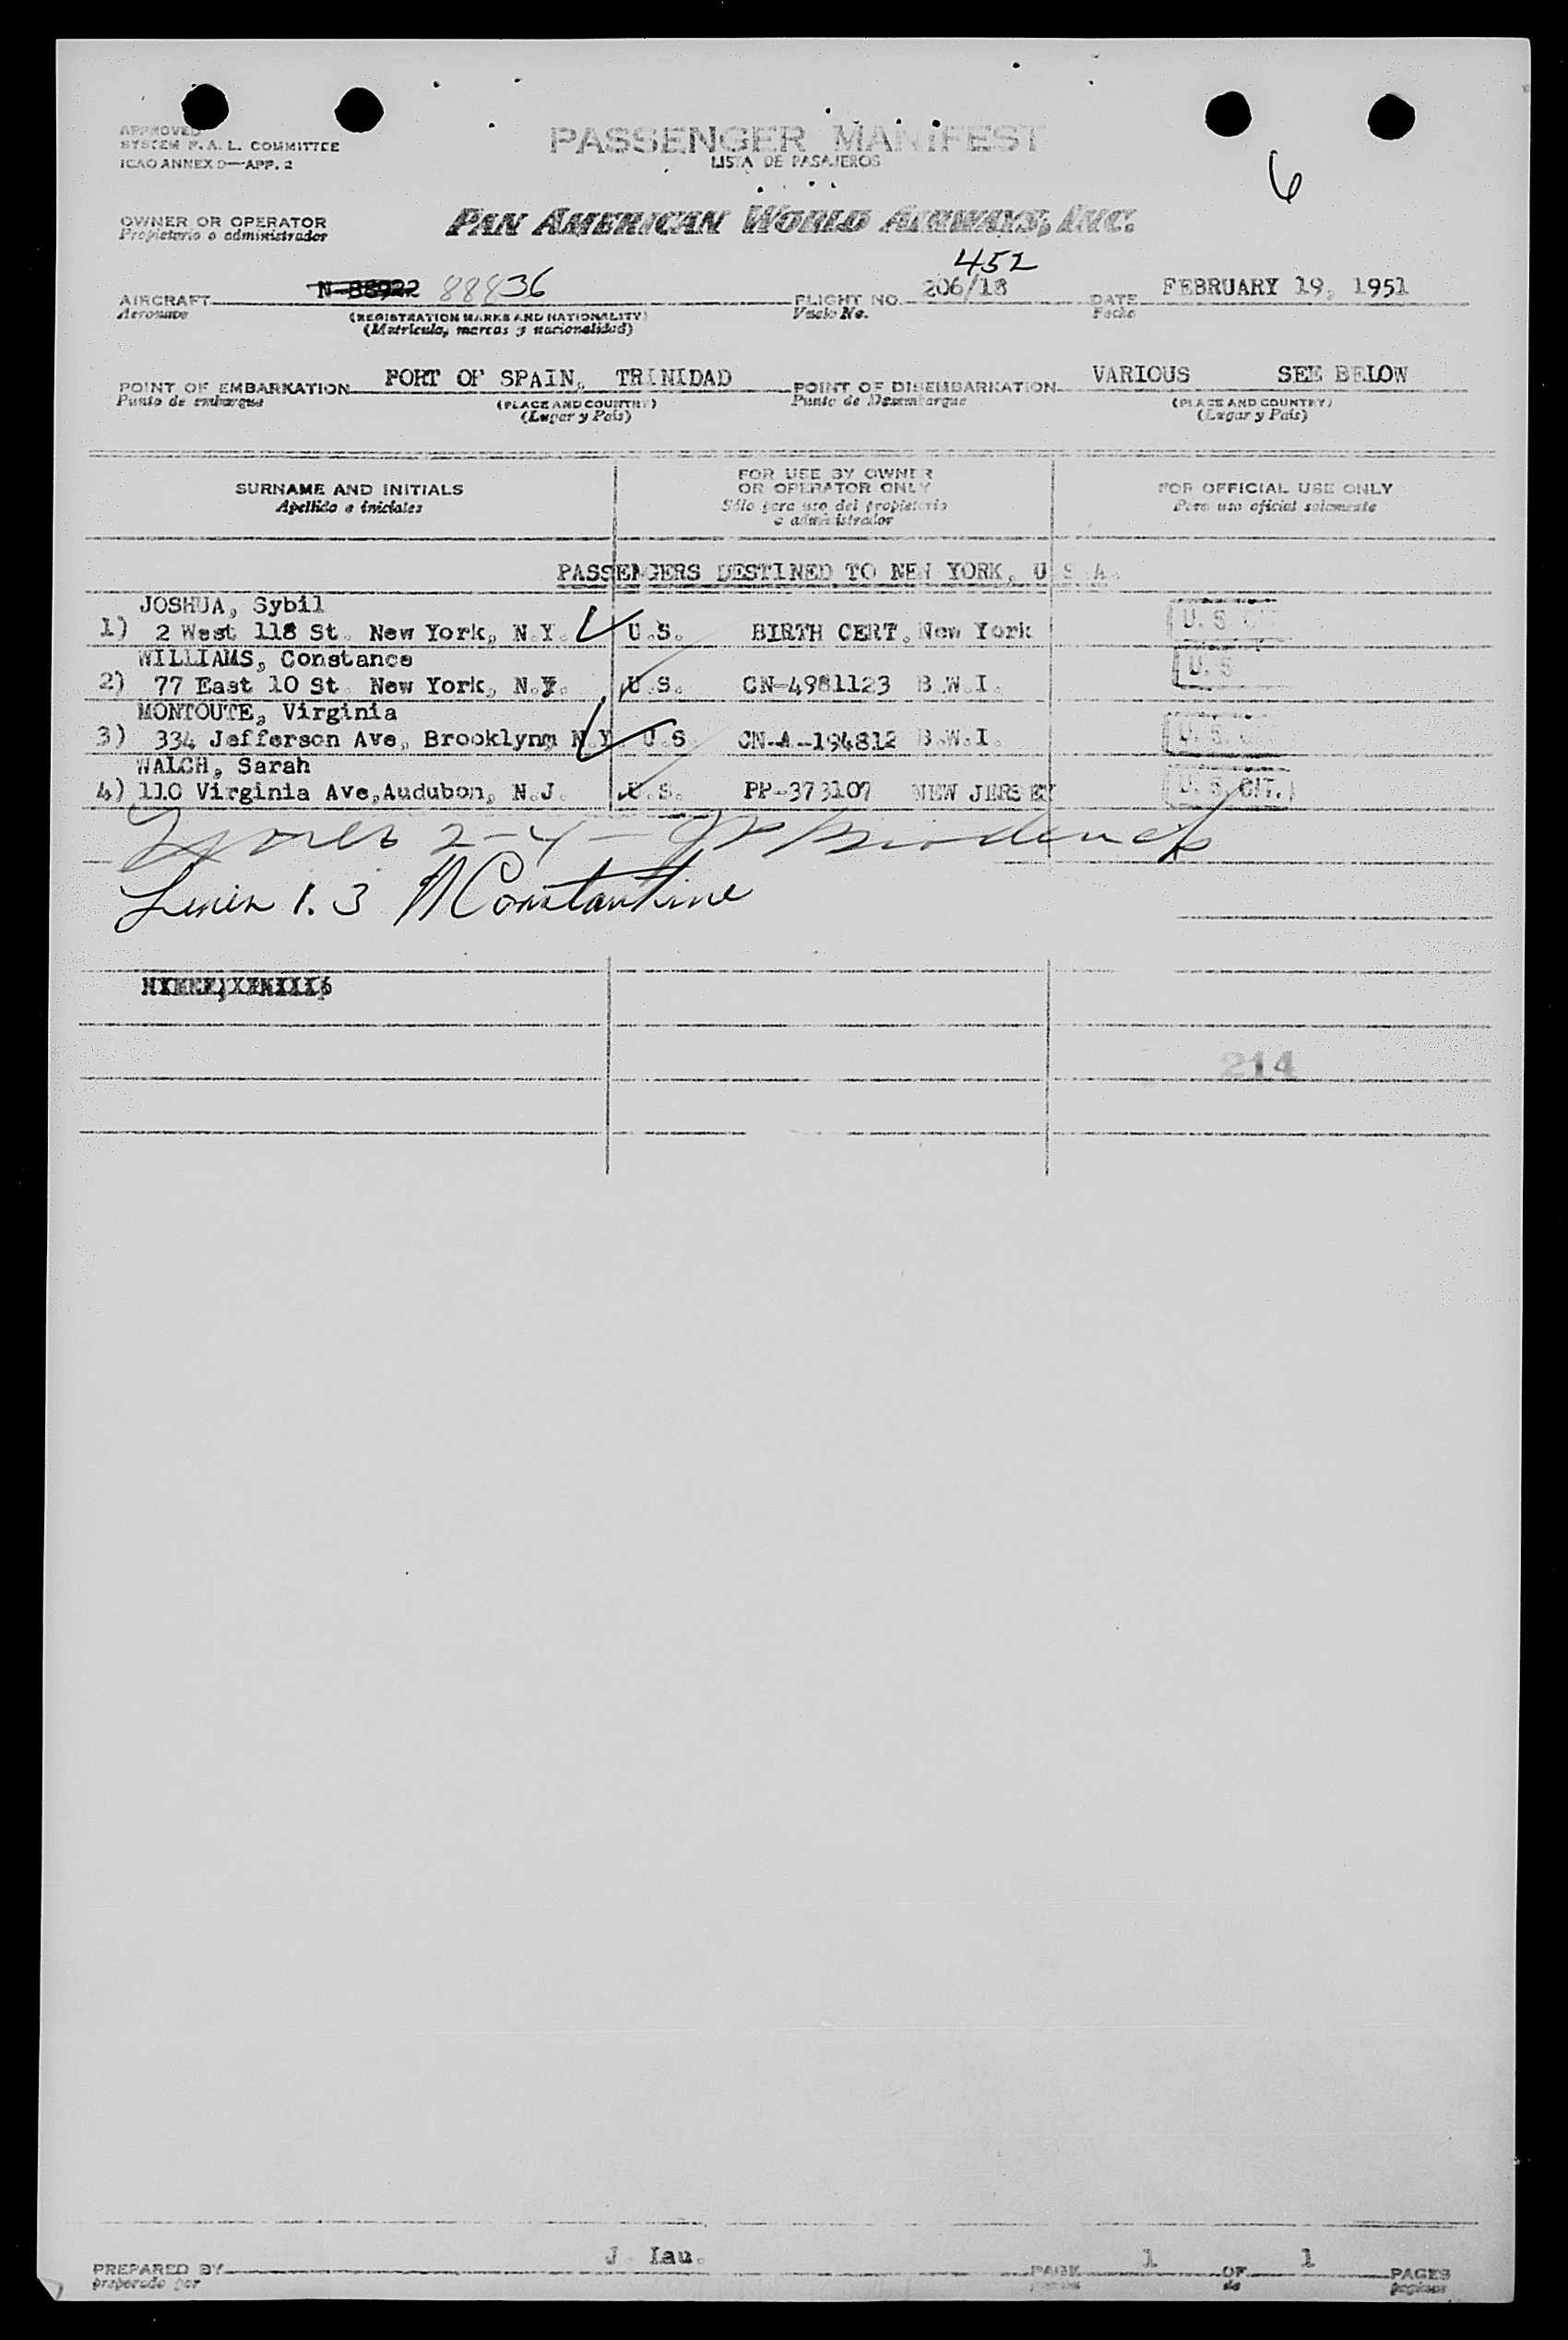 APPROVED
SYSTEM F. A. L. COMMITTEE
ICAO ANNEX 9—APP. 2
PASSENGER MANIFEST
LISTA DE PASAJEROS
6
OWNER OR OPERATOR
Propietario o administrador
PAN AMERICAN WORLD AIRWAYS, INC.
452
AIRCRAFT N-88922 88836 FLIGHT NO. 206/18 DATE FEBRUARY 19, 1951
Aeronave (REGISTRATION MARKS AND NATIONALITY) Vuelo No. Fecha
(Matricula, marcas y nacionalidad)
POINT OF EMBARKATION PORT OF SPAIN, TRINIDAD POINT OF DISEMBARKATION VARIOUS SEE BELOW
Punto de embarque (PLACE AND COUNTRY) Punto de Desembarque (PLACE AND COUNTRY)
(Lugar y País) (Lugar y País)
SURNAME AND INITIALS
Apellido e iniciales
FOR USE BY OWNER
OR OPERATOR ONLY
Sólo para uso del propietario
o administrador
FOR OFFICIAL USE ONLY
Para uso oficial solamente
PASSENGERS DESTINED TO NEW YORK, U.S.A.
JOSHUA, Sybil
1) 2 West 118 St. New York, N.Y. U.S. BIRTH CERT. New York U. S. CIT
WILLIAMS, Constance
2) 77 East 10 St. New York, N.Y. U.S. CN-4981123 B.W.I. U. S
MONTOUTE, Virginia
3) 334 Jefferson Ave, Brooklynm N.Y. U.S. CN-A-194812 B.W.I. U. S. C
WALCH, Sarah
4) 110 Virginia Ave,Audubon, N.J. U.S. PP-373107 NEW JERSEY U. S. CIT.
2-4-
1. 3 Constantine
214
PREPARED BY J. Lau. PAGE 1 OF 1 PAGES
preparado por pagina de paginas